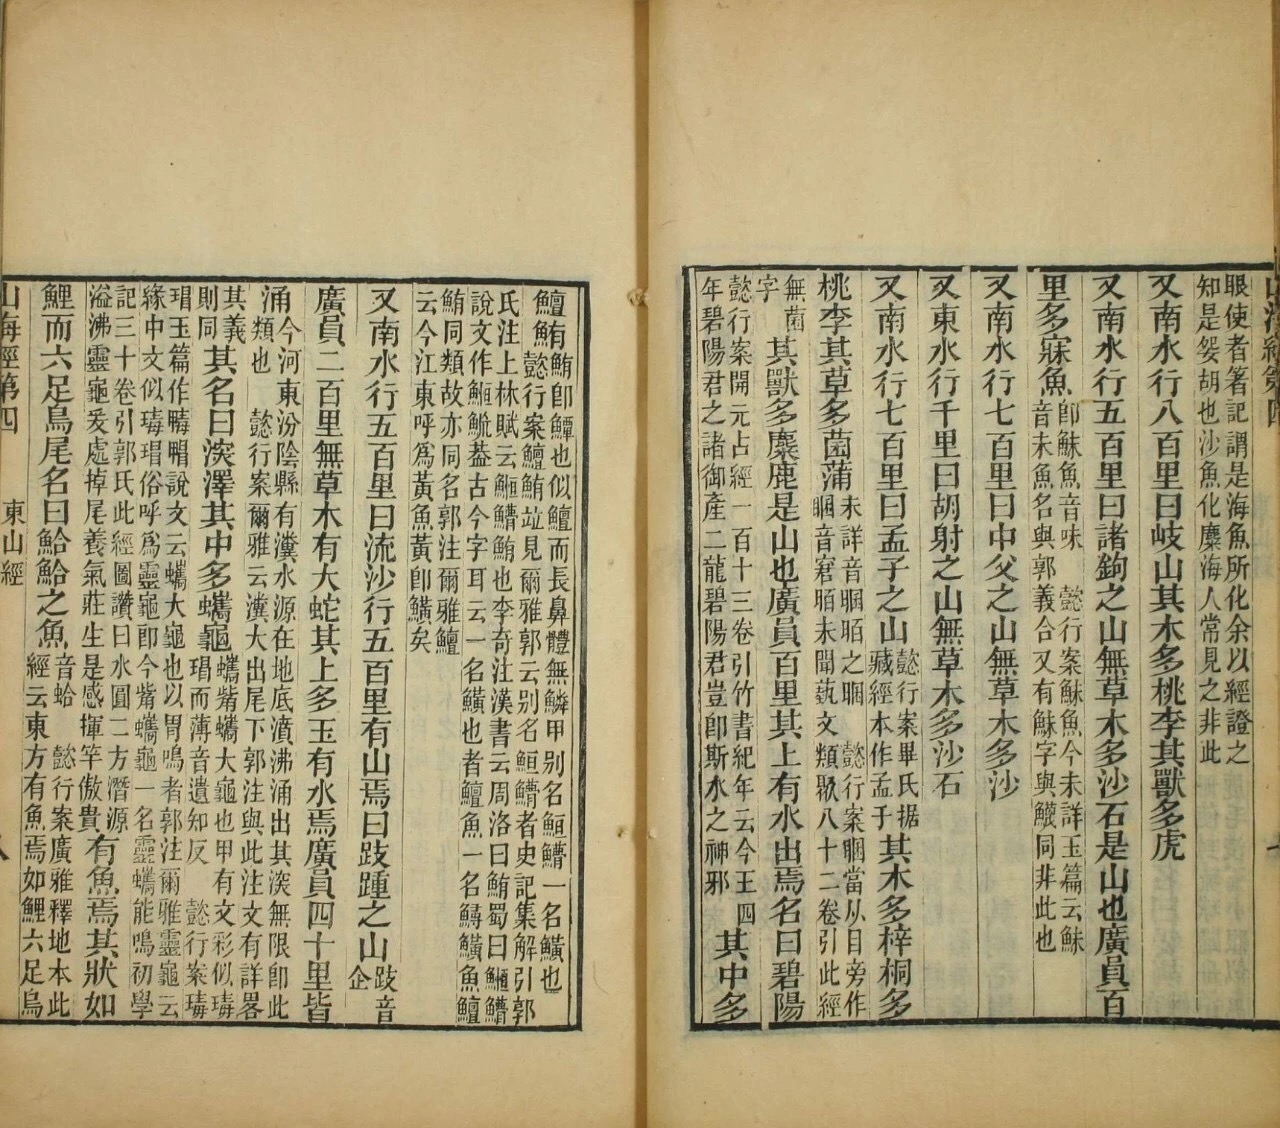 山海經第四
眼使者箸記謂是海魚所化余以經證之
知是妴胡也沙魚化麋海人常見之非此
又南水行八百里曰岐山其木多桃李其獸多虎
又南水行五百里曰諸鉤之山無草木多沙石是山也廣員百
里多寐魚
卽鮇魚音味 懿行案鮇魚今未詳玉篇云鮇
音未魚名與郭義合又有鮴字與鱴同非此也
又南水行七百里曰中父之山無草木多沙
又東水行千里曰胡射之山無草木多沙石
又南水行七百里曰孟子之山
懿行案畢氏据
藏經本作孟于
其木多梓桐多
桃李其草多菌蒲
未詳音睏䀄之睏 懿行案睏當从目旁作
睏音窘䀄未聞藝文類聚八十二卷引此經
無菌
字
其獸多麋鹿是山也廣員百里其上有水出焉名曰碧陽
懿行案開元占經一百十三卷引竹書紀年云今王四
年碧陽君之諸御產二龍碧陽君豈卽斯水之神邪
其中多
鱣鮪
鮪卽鱏也似鱣而長鼻體無鱗甲别名䱭䲛一名鱑也
懿行案鱣鮪竝見爾雅郭云别名䱭䲛者史記集解引郭
氏注上林賦云䱭䲛鮪也李奇注漢書云周洛曰鮪蜀曰䱭䲛
說文作䱎䲛葢古今字耳云一名鱑也者鱣魚一名鱘鱑魚鱣
鮪同類故亦同名郭注爾雅鱣
云今江東呼爲黃魚黃卽鱑矣
又南水行五百里曰流沙行五百里有山焉曰跂踵之山
跂音
企
廣員二百里無草木有大蛇其上多玉有水焉廣員四十里皆
涌
今河東汾陰縣有瀵水源在地底濆沸涌出其深無限卽此
類也 懿行案爾雅云瀵大出尾下郭注與此注文有詳畧
其義
則同
其名曰深澤其中多蠵龜
蠵觜蠵大龜也甲有文彩似瑇
瑁而薄音遺知反 懿行案瑇
瑁玉篇作䗯䗋說文云蠵大龜也以胃鳴者郭注爾雅靈龜云
緣中文似瑇瑁俗呼爲靈龜卽今觜蠵龜一名靈蠵能鳴初學
記三十卷引郭氏此經圖讚曰水圓二方潛源
溢沸靈龜爰處掉尾養氣莊生是感揮竿傲貴
有魚焉其狀如
鯉而六足鳥尾名曰鮯鮯之魚
音蛤 懿行案廣雅釋地本此
經云東方有魚焉如鯉六足鳥
山海經第四 東山經 八